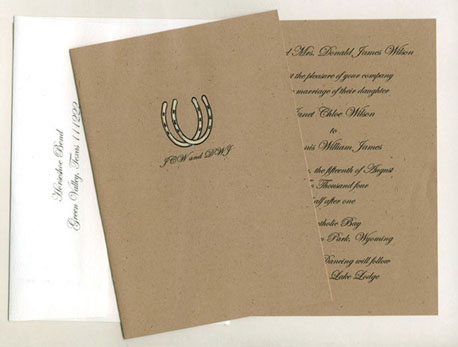 Horseshoe Bend
Green Valley, Texas
JCW and DWJ
Mrs. Donald James Wilson
the pleasure of your company
marriage of their daughter
Chloe Wilson
to
William James
the fifteenth of August
Thousand four
after one
Bay
Park, Wyoming
Dancing will follow
Lake Lodge